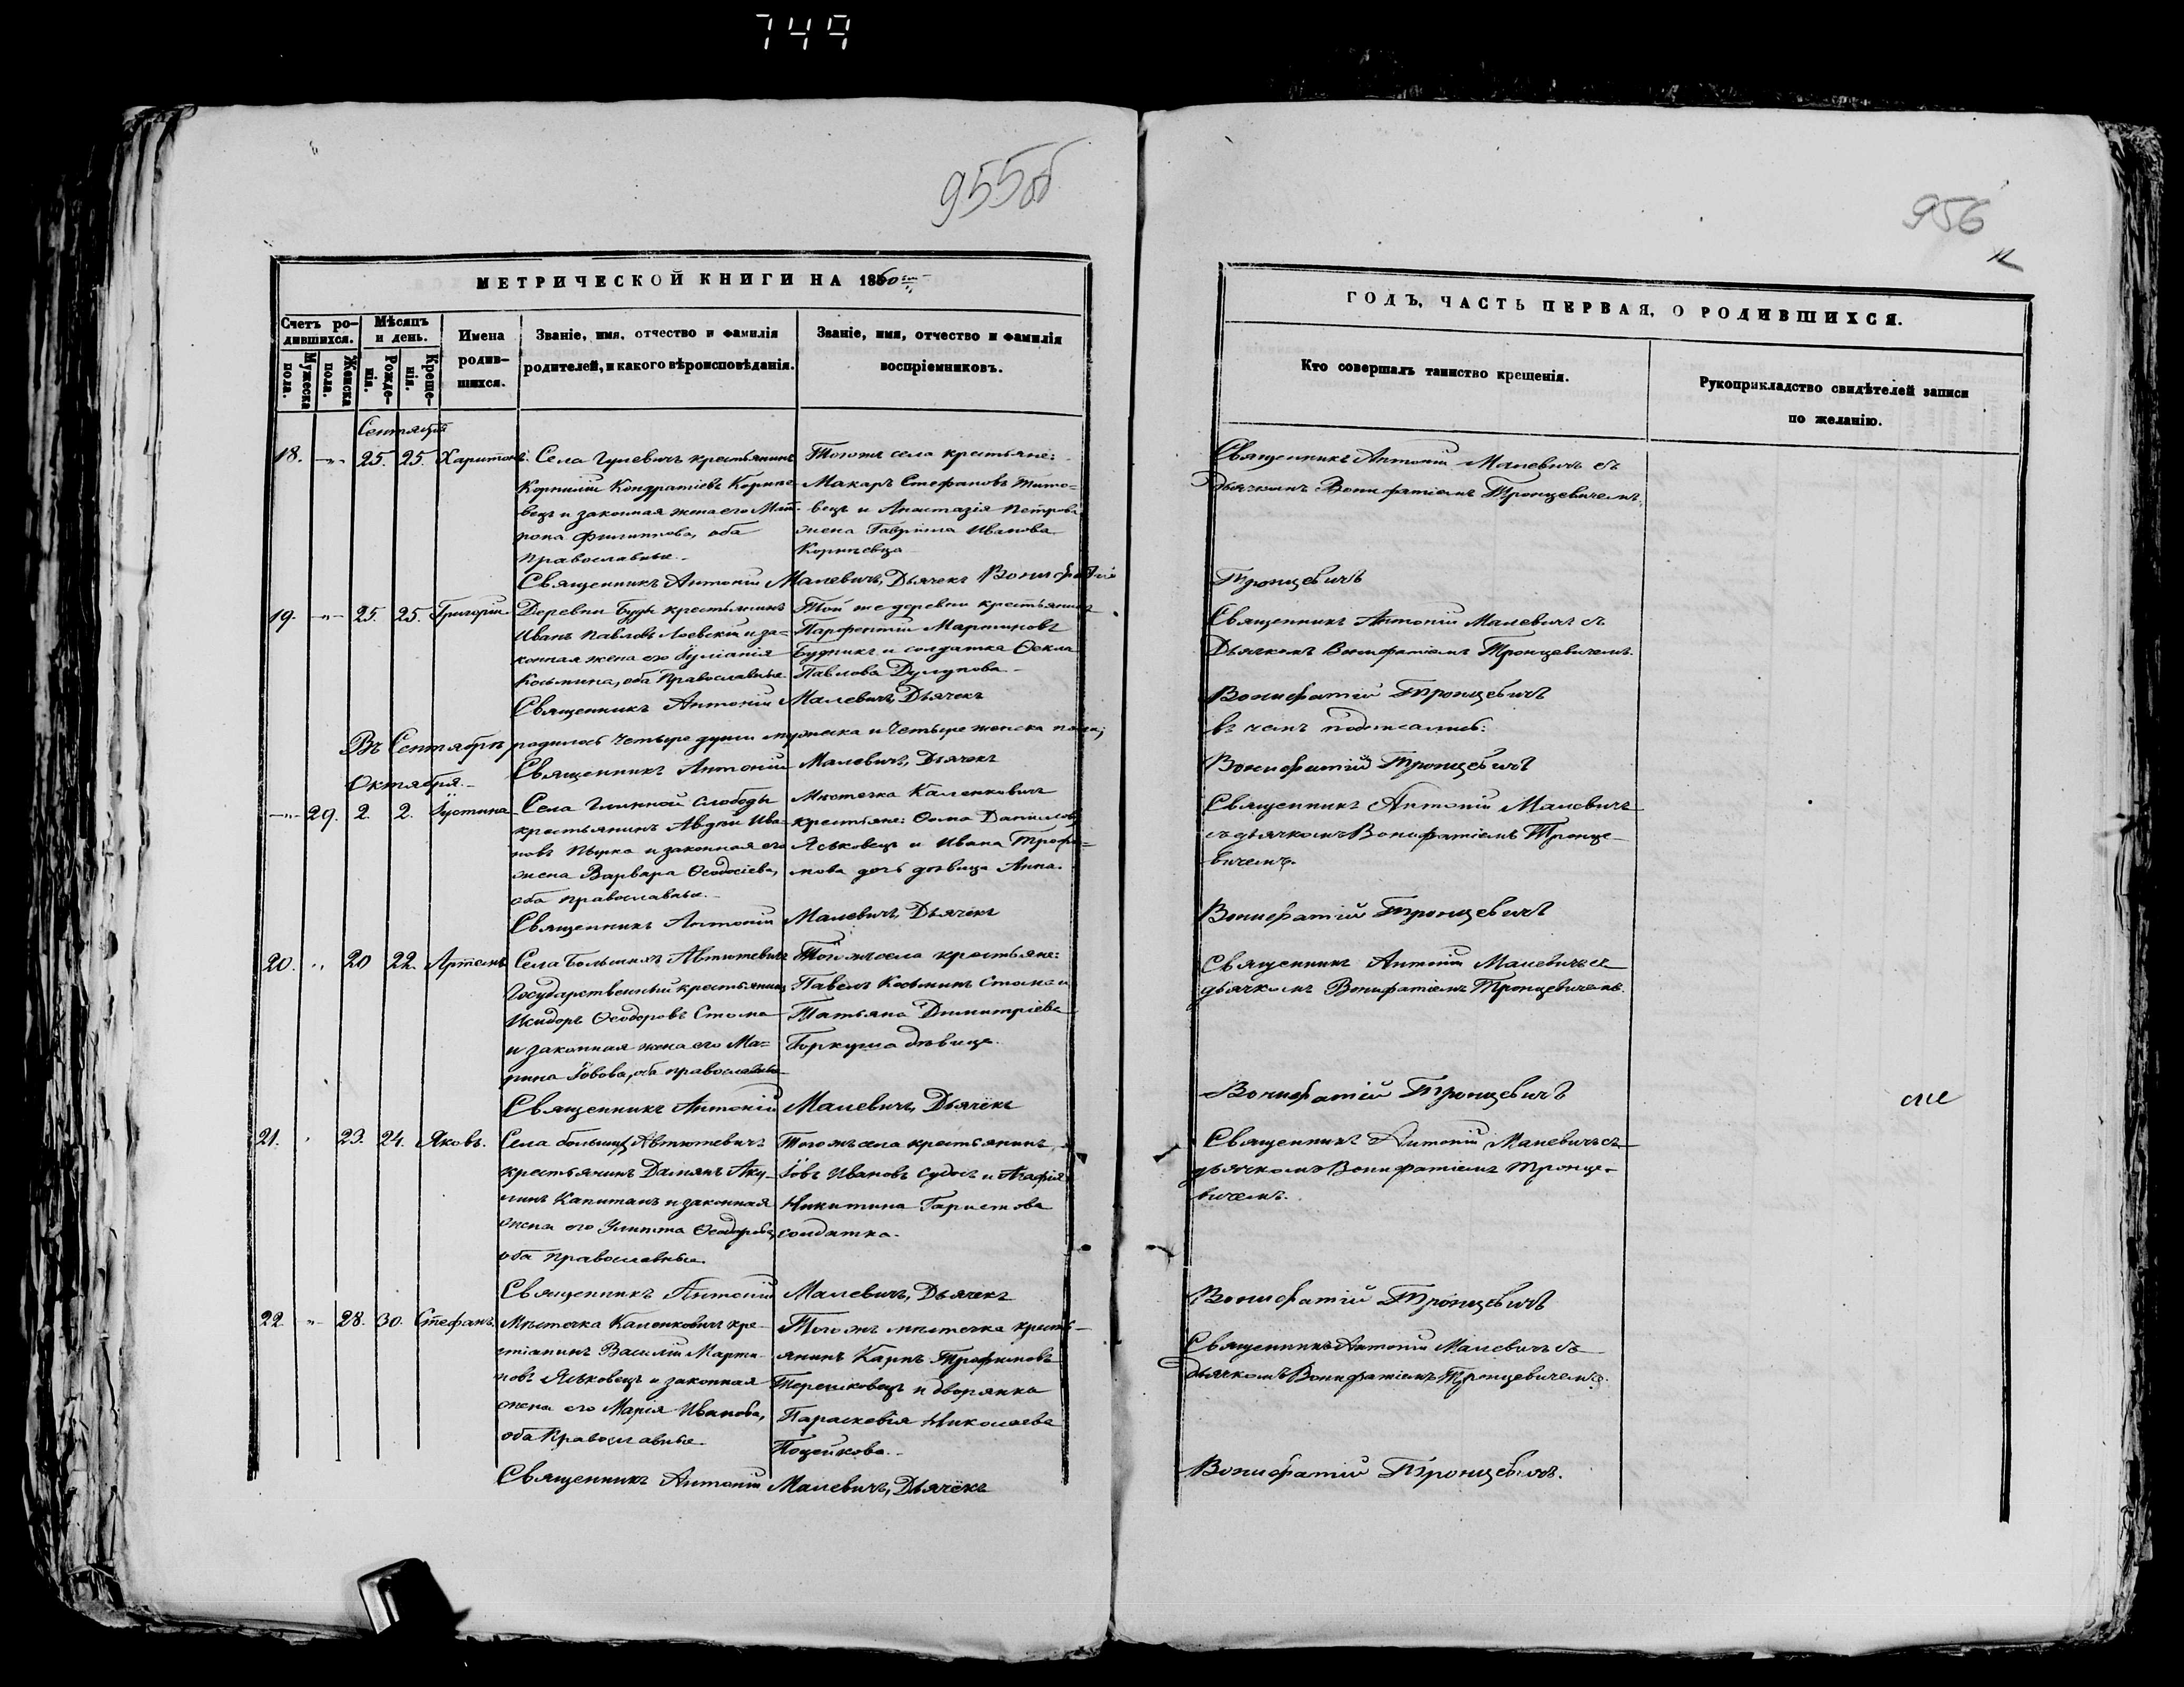 749
955об
956
МЕТРИЧЕСКОЙ КНИГИ НА 1860
Счетъ ро-
дившихся.
Мѣсяцъ
и день.
Мужеска
пола.
Женска
пола.
Рожде-
нія.
Креще-
нія.
Имена
родив-
шихся.
Званіе, имя, отчество и фамилія
родителей, и какого вѣроисповѣданія.
Званіе, имя, отчество и фамилія
воспріемниковъ.
ГОДЪ, ЧАСТЬ ПЕРВАЯ, О РОДИВШИХСЯ.
Кто совершалъ таинство крещенія.
Рукоприкладство свидѣтелей записи
по желанію.
Сентября
18. 25. 25. Харитонъ.
Села Гулевичъ крестьянинъ
Корнилій Кондратіевъ Корние-
вецъ и законная жена его Мат-
рона Филиппова, оба
православные.
Тогожъ села крестьяне:
Макаръ Стефановъ Тито-
вецъ и Анастазія Петрова
жена Гавріила Иванова
Корніевца
Священникъ Антоній Малевичъ съ
дьячкомъ Вонифатіемъ Тронцевичемъ.
Священникъ Антоній Малевичъ, Дьячекъ Вонифатій
Тронцевичъ
19. 25. 25. Григорій
Деревни Буды крестьянинъ
Иванъ Павловъ Лоевскій и за-
конная жена его Іуліанія
Косьмина, оба Православные.
Той же деревни крестьянинъ
Парфентій Мартиновъ
Будникъ и солдатка Ѳекла
Павлова
Священникъ Антоній Малевичъ съ
Дьячкомъ Вонифатіемъ Тронцевичемъ.
Священникъ Антоній Малевичъ, Дьячекъ
Вонифатій Тронцевичъ
Въ Сентябрѣ родилось Четыре души мужеска и Четыре женска пола;
въ чемъ подписались:
Священникъ Антоній Малевичъ, Дьячекъ
Вонифатій Тронцевичъ
Октября
29. 2. 2. Іустина
Села Глинной Слободы
крестьянинъ Авдѣй Ива-
новъ Пырка и законная его
жена Варвара Ѳеодосіева,
оба православные.
Мѣстечка Каленковичъ
крестьяне: Ѳома Даниловъ
Яськовецъ и Ивана Трофи-
мова дочь дѣвица Анна.
Священникъ Антоній Малевичъ
съ дьячкомъ Вонифатіемъ Тронце-
вичемъ.
Священникъ Антоній Малевичъ, Дьячекъ
Вонифатій Тронцевичъ
20. 20 22. Артемъ
Села Большихъ Автютевичъ
Государственный крестьянинъ
Исидоръ Ѳеодоровъ Стома
и законная жена его Ма-
рина Іовова, оба православные
Тогожъ села крестьяне:
Павелъ Косьминъ Стома и
Татьяна Димитріева
Боркуша дѣвица.
Священникъ Антоній Малевичъ съ
дьячкомъ Вонифатіемъ Тронцевичемъ.
Священникъ Антоній Малевичъ, Дьячекъ
Вонифатій Тронцевичъ
21. 23. 24. Яковъ.
Села большихъ Автютевичъ
крестьянинъ Даміянъ Аку-
линъ Капитанъ и законная
жена его Улита Ѳеодорова,
оба православные.
Тогожъ села крестьянинъ
Іовъ Ивановъ Судосъ и Агафія
Никитина
солдатка.
Священникъ Антоній Малевичъ съ
дьячкомъ Вонифатіемъ Тронце-
вичемъ.
Священникъ Антоній Малевичъ, Дьячекъ
Вонифатій Тронцевичъ
22. 28. 30. Стефанъ.
Мѣстечка Каленковичъ кре-
стіянинъ Василій Марти-
новъ Яськовецъ и законная
жена его Марія Иванова,
оба Православные.
Тогожъ мѣстечка кресть-
янинъ Карпъ Трофимовъ
Терешковецъ и дворянка
Параскевія Николаева
Поцейкова.
Священникъ Антоній Малевичъ съ
дьячкомъ Вонифатіемъ Тронцевичемъ.
Священникъ Антоній Малевичъ, Дьячекъ
Вонифатій Тронцевичъ.